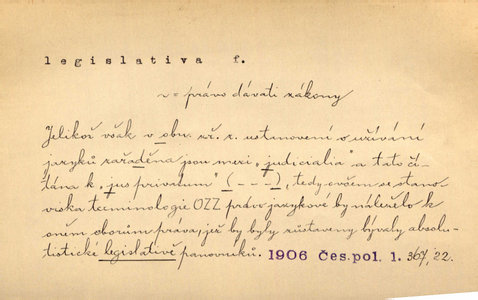 legislativa f.
v = právo dávati zákony
Jelikož však v obn. zř. z. ustanovení o užívání
jazyků zařaděna jsou mezi „judicialia“ a tato čí-
tána k „jus privatum“ (---), tedy ovšem se stano-
viska terminologie OZZ právo jazykové by náleželo k
oněm oborům práva, jež by byly zůstaveny bývaly absolu-
tistické legislativě panovníků. 1906 Čes. pol. 1. 367/22.